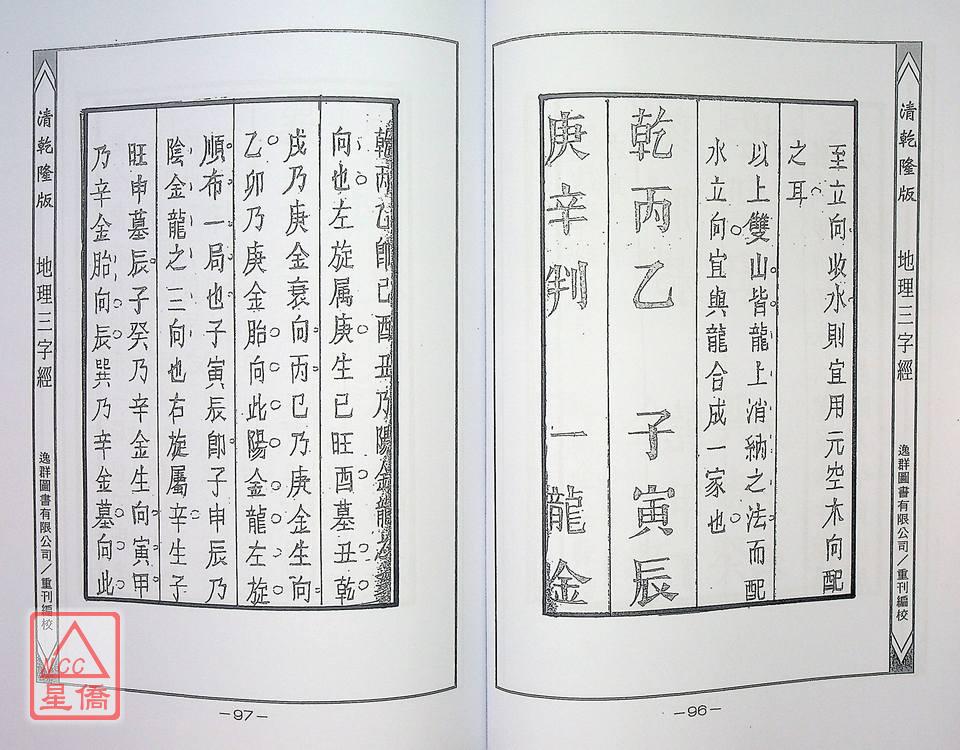 清乾隆版 地理三字經 逸群圖書有限公司/重刊編校
至立向收水則宜用元空木向配
之耳
以上雙山皆龍上消納之法而配
水立向宜與龍合成一家也
乾丙乙 子寅辰
庚辛判 一龍金
—96—
乾丙乙即巳酉丑乃陽金龍
向也左旋属庚生巳旺酉墓丑乾
戌乃庚金衰向丙巳乃庚金生向
乙卯乃庚金胎向此陽金龍左旋
順布一局也子寅辰即子申辰乃
陰金龍之三向也右旋屬辛生子
旺申墓辰子癸乃辛金生向寅甲
乃辛金胎向辰巽乃辛金墓向此
清乾隆版 地理三字經 逸群圖書有限公司/重刊編校
—97—
NCC
星僑